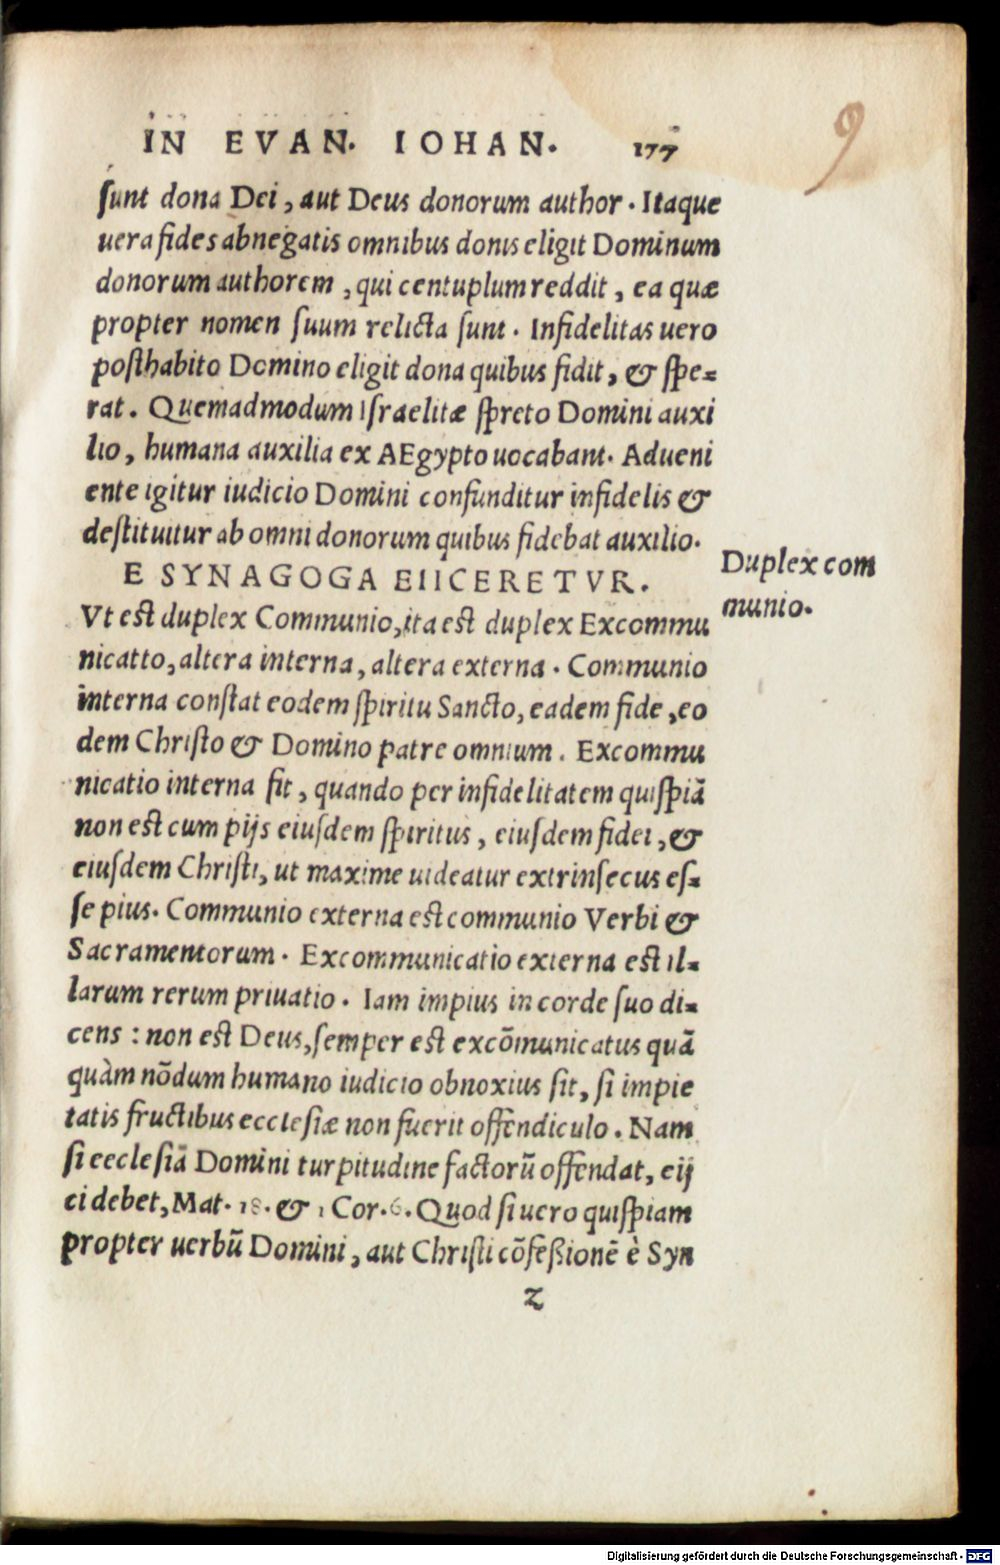 IN EVAN. IOHAN. 177
9
sunt dona Dei, aut Deus donorum author. Itaque
uera fides abnegatis omnibus donis eligit Dominum
donorum authorem, qui centuplum reddit, ea quæ
propter nomen suum relicta sunt. Infidelitas uero
posthabito Domino eligit dona quibus fidit, & spe-
rat. Quemadmodum Israelitæ spreto Domini auxi
lio, humana auxilia ex AEgypto uocabant. Adueni
ente igitur iudicio Domini confunditur infidelis &
destituitur ab omni donorum quibus fidebat auxilio.
E SYNAGOGA EIICERETVR.
Duplex com
munio.
Vt est duplex Communio, ita est duplex Excommu
nicatto, altera interna, altera externa. Communio
interna constat eodem spiritu Sancto, eadem fide, eo
dem Christo & Domino patre omnium. Excommu
nicatio interna fit, quando per infidelitatem quispiā
non est cum pijs eiusdem spiritus, eiusdem fidei, &
eiusdem Christi, ut maxime uideatur extrinsecus es-
se pius. Communio externa est communio Verbi &
Sacramentorum. Excommunicatio externa est il-
larum rerum priuatio. Iam impius in corde suo di-
cens: non est Deus, semper est excōmunicatus quā
quàm nōdum humano iudicio obnoxius sit, si impie
tatis fructibus ecclesiæ non fuerit offendiculo. Nam
si ecclesiā Domini turpitudine factorū offendat, eij
ci debet, Mat. 18. & 1 Cor. 6. Quod si uero quispiam
propter uerbū Domini, aut Christi cōfeßionē è Syn
z
Digitalisierung gefördert durch die Deutsche Forschungsgemeinschaft - DFG